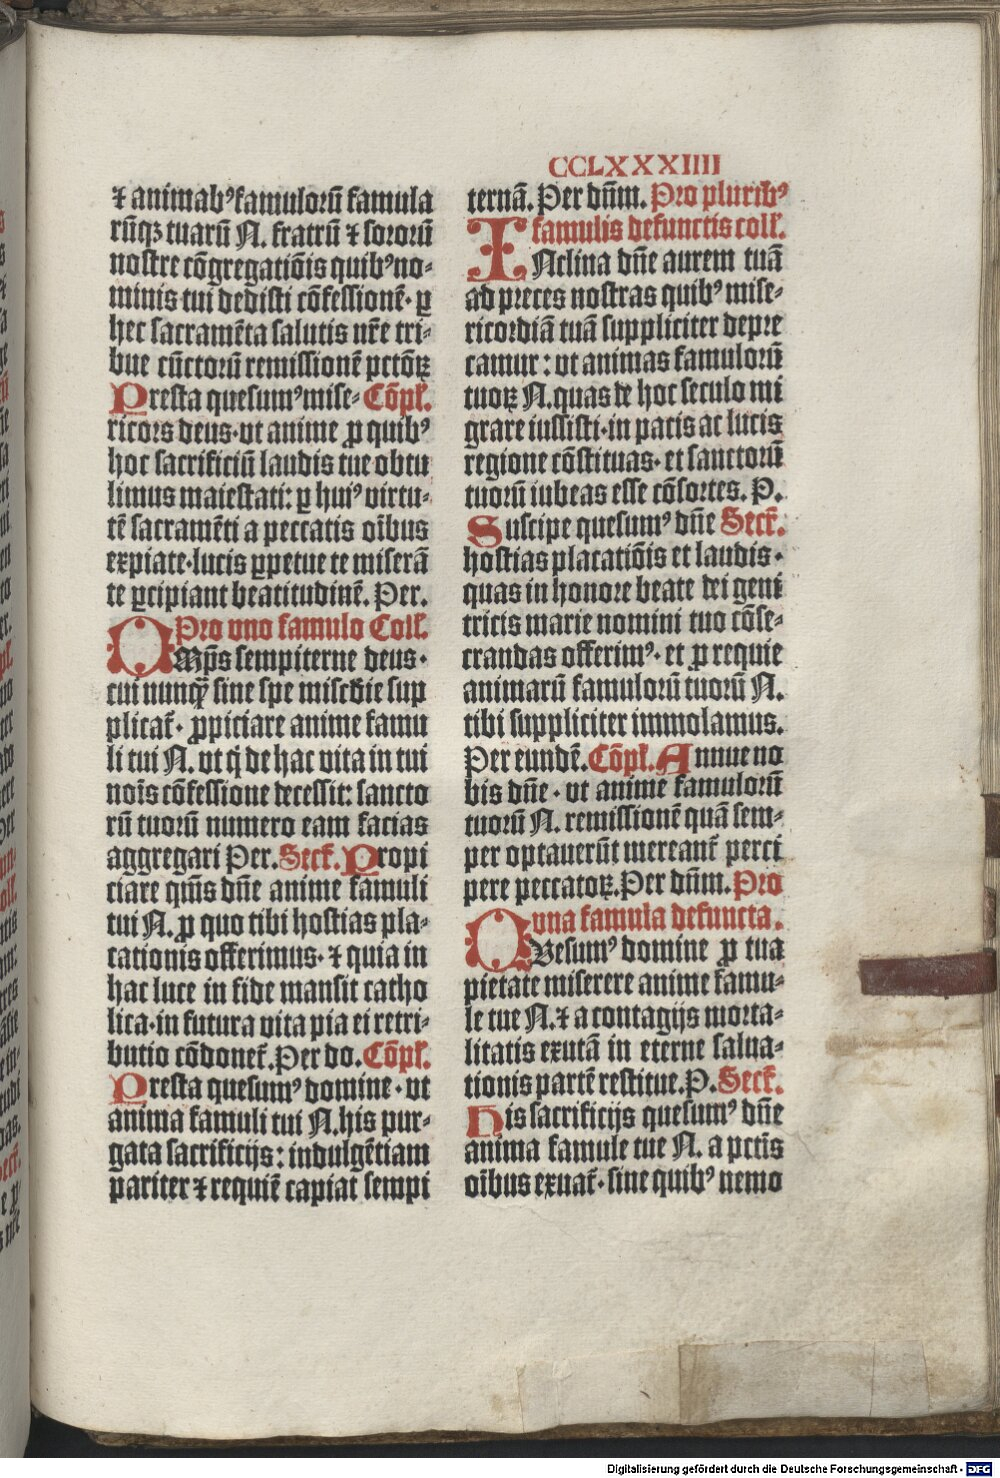 CCLXXXIIII
⁊ animabꝰ famulorū famula
rūqꝫ tuarū N. fratrū ⁊ sororū
nostre cōgregatiōis quibꝰ no-
minis tui dedisti cōfessionē· ꝑ
hec sacramēta salutis nr̄e tri-
bue cūctorū remissionē pctōꝝ
Presta quesumꝰ mise- Cōpl̄.
ricors deus·ut anime ꝓ quibꝰ
hoc sacrificiū laudis tue obtu
limus maiestati: ꝑ huiꝰ virtu-
tē sacramēti a peccatis oībus
expiate·lucis ꝑpetue te miserā
te ꝑcipiant beatitudinē. Per.
Pro uno famulo Coll̄.
OMp̄s sempiterne deus·
cui nunqꝫ̄ sine spe miscd̄ie sup
plicat̄· ꝓpiciare anime famu
li tui N. ut q̇ de hac vita in tui
noīs cōfessione decessit: sancto
rū tuorū numero eam facias
aggregari Per. Secr̄. Propi
ciare qm̄s dn̄e anime famuli
tui N. ꝓ quo tibi hostias pla-
cationis offerimus· ⁊ quia in
hac luce in fide mansit catho
lica·in futura vita pia ei retri-
butio cōdonet̄. Per do. Cōpl̄.
Presta quesumꝰ domine· ut
anima famuli tui N. his pur-
gata sacrificijs: indulgētiam
pariter ⁊ requiē capiat sempi
ternā. Per dn̄m. Pro pluribꝰ
famulis defunctis coll̄.
INclina dn̄e aurem tuā
ad preces nostras quibꝰ mise-
ricordiā tuā suppliciter depre
camur: ut animas famulorū
tuoꝝ N. quas de hoc seculo mi
grare iussisti·in pacis ac lucis
regione cōstituas· et sanctorū
tuorū iubeas esse cōsortes. P.
Suscipe quesumꝰ dn̄e Secr̄.
hostias placatiōis et laudis·
quas in honore beate dei geni
tricis marie nomini tuo cōse-
crandas offerimꝰ· et ꝓ requie
animarū famulorū tuorū N.
tibi suppliciter immolamus.
Per eundē. Cōpl̄. Annue no
bis dn̄e· ut anime famulorū
tuorū N. remissionē quā sem-
per optauerūt mereant̄ perci
pere peccatoꝝ. Per dn̄m. Pro
una famula defuncta.
QVesumꝰ domine ꝓ tua
pietate miserere anime famu-
le tue N. ⁊ a contagijs morta-
litatis exutā in eterne salua-
tionis partē restitue. P. Secr̄.
His sacrificijs quesumꝰ dn̄e
anima famule tue N. a pctīs
oībus exuat̄·sine quibꝰ nemo
Digitalisierung gefördert durch die Deutsche Forschungsgemeinschaft - DFG